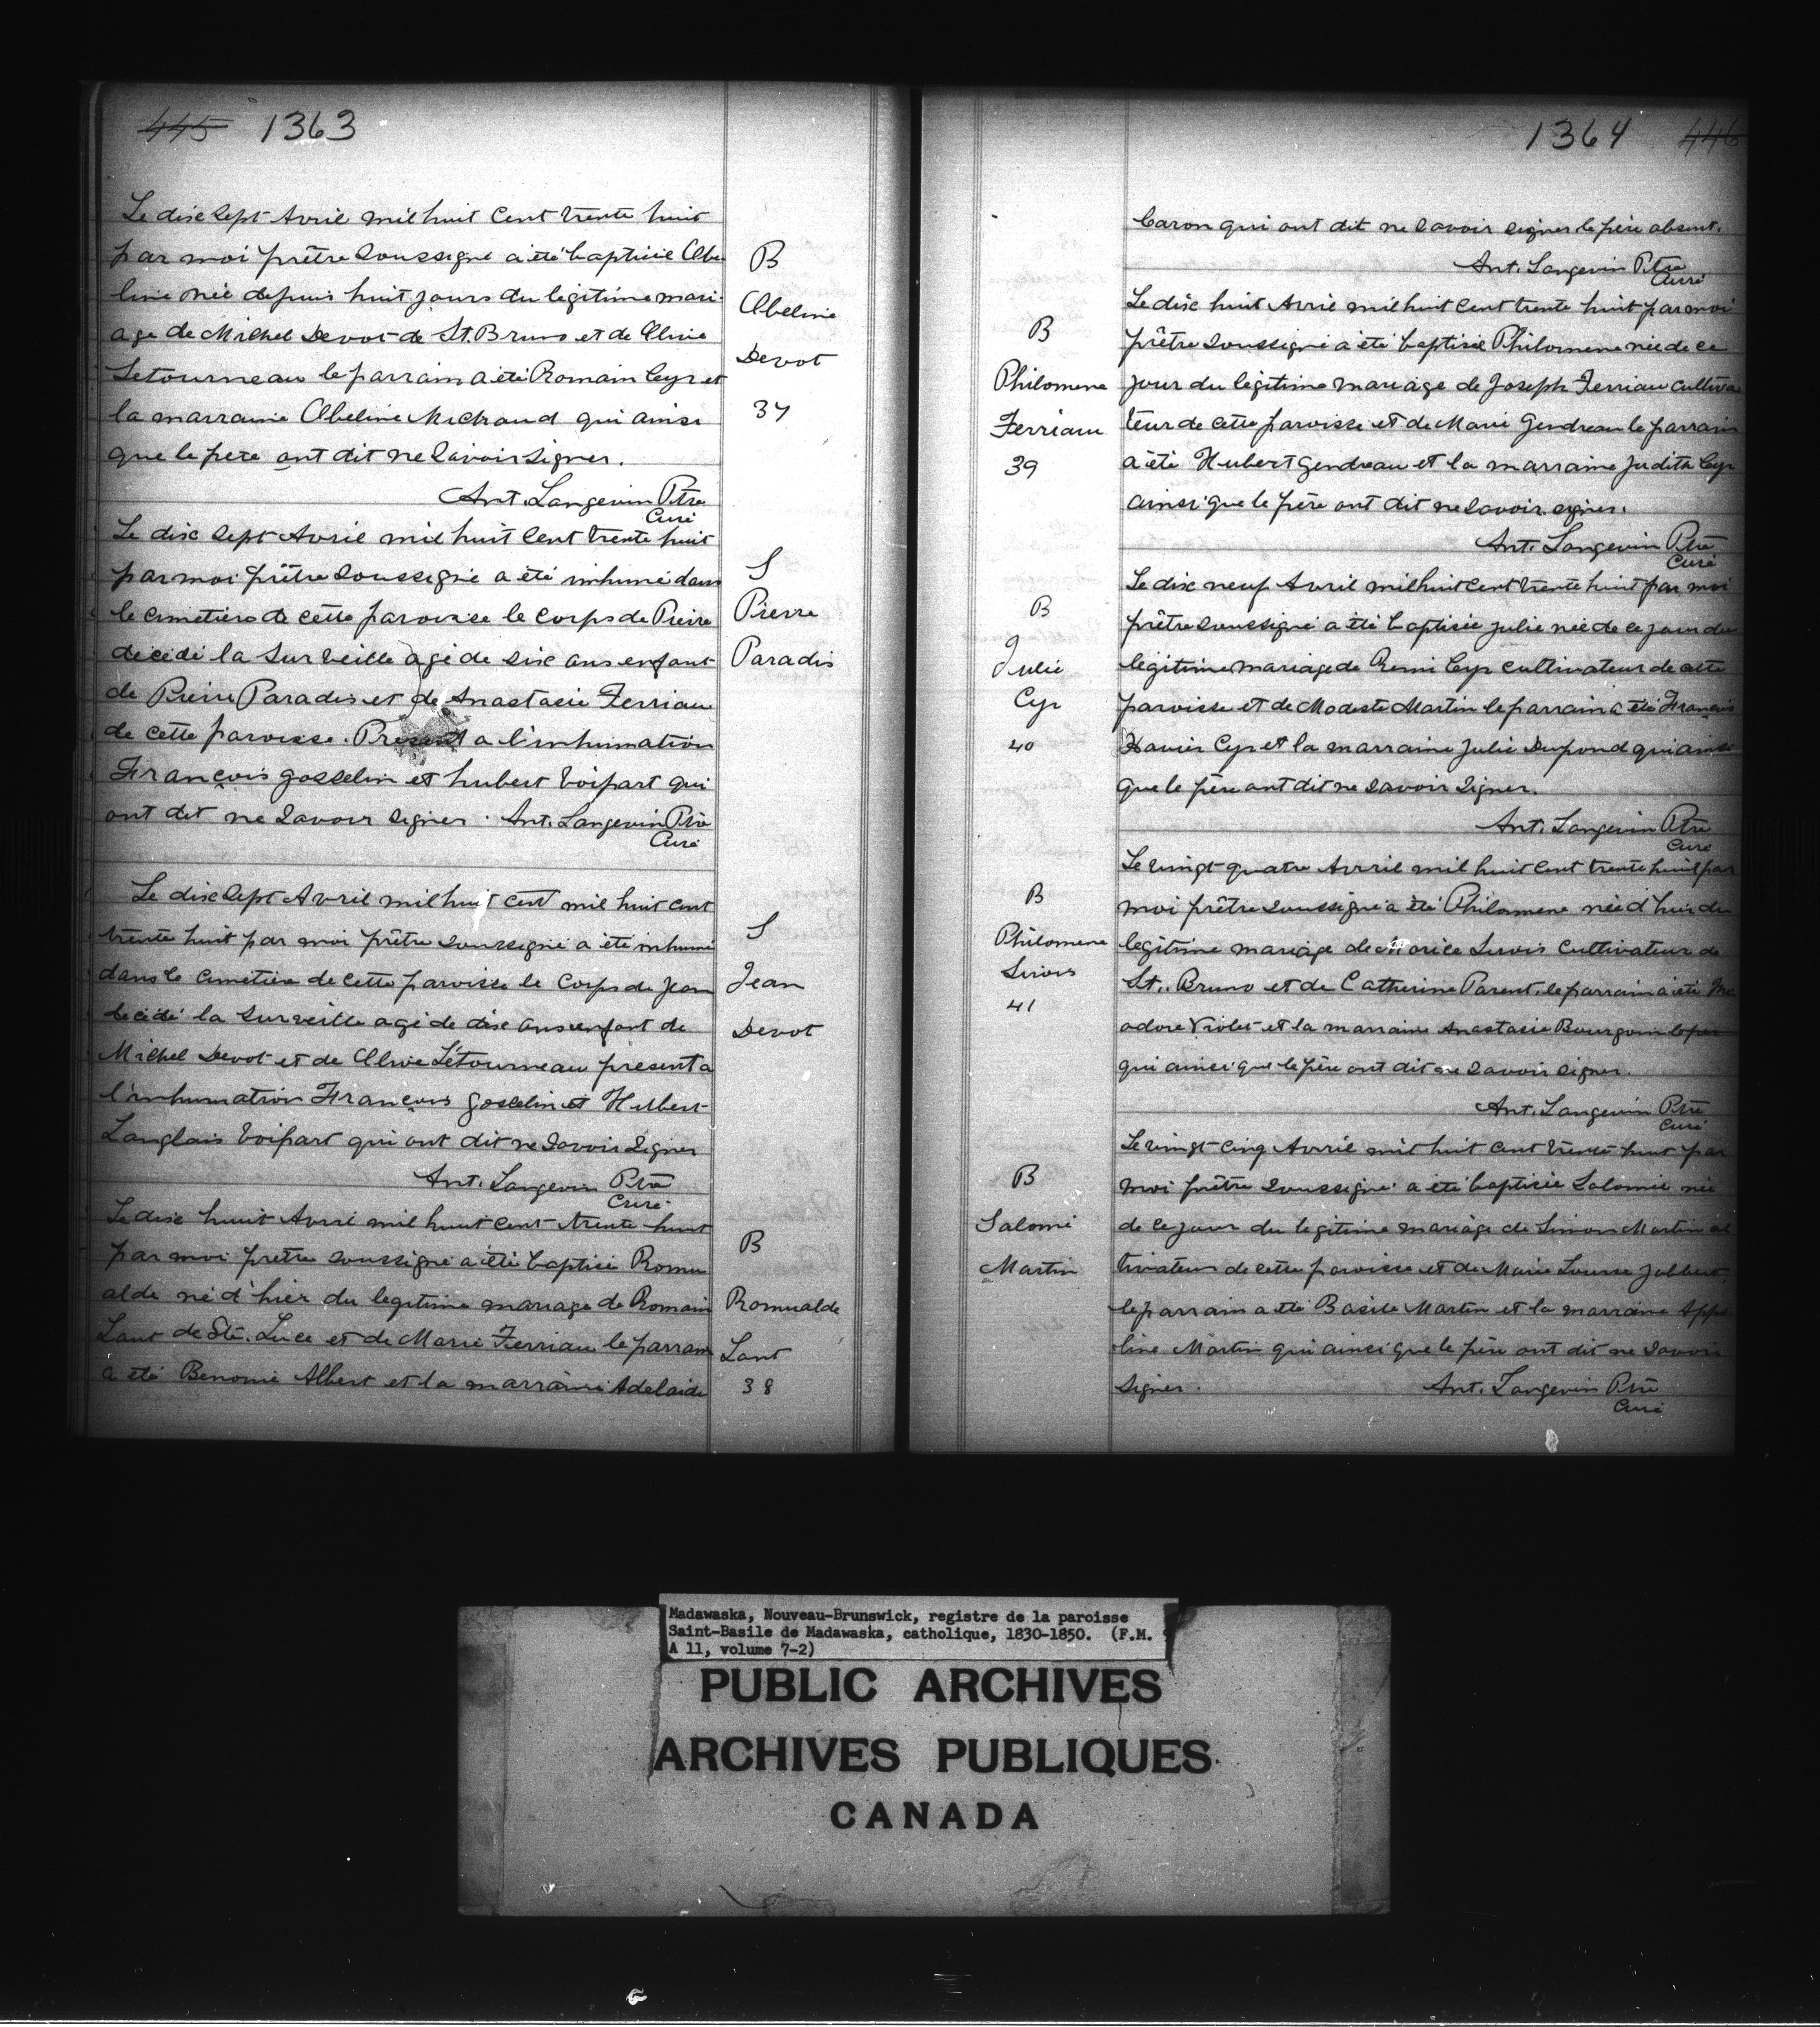 445 1363
Le dix sept Avril mil huit cent trente huit
par moi prêtre soussigné a été baptisée Obe
line née depuis huit jours du légitime mari
age de Michel Devot de St. Bruno et de Olivie
Letourneau le parrain a été Romain Cyr et
la marraine Obeline Michaud qui ainsi
que le père ont dit ne savoir signer.
Ant. Langevin Ptre
Curé
B
Obeline
Devot
37
Le dix sept Avril mil huit cent trente huit
par moi prêtre soussigné a été inhumé dans
le cimetière de cette paroisse le corps de Pierre
décédé la surveille agé de six ans enfant
de Pierre Paradis et de Anastasie Ferriau
de cette paroisse. Présent a l'inhumation
François Gosselin et hubert Voipart qui
ont dit ne savoir signer. Ant. Langevin Ptre
Curé
S
Pierre
Paradis
Le dix sept Avril mil huit cent mil huit cent
trente huit par moi prêtre soussigné a été inhumé
dans le cimetière de cette paroisse le corps de Jean
decédé la surveille agé de dix ans enfant de
Michel Devot et de Olivie Létourneau present a
l'inhumation François Gosselin et Hubert
Langlais Voipart qui ont dit ne savoir signer
Ant. Langevin Ptre
Curé
S
Jean
Devot
Le dix huit Avril mil huit cent trente huit
par moi prêtre soussigné a été baptisé Romu
alde né d'hier du legitime mariage de Romain
Lant de Ste. Luce et de Marie Ferriau le parrain
a été Benonie Albert et la marraine Adelaide
B
Romualde
Lant
38
1364 446
Caron qui ont dit ne savoir signer le père absent.
Ant. Langevin Ptre
Curé
Le dix huit Avril mil huit cent trente huit par moi
prêtre soussigné a été baptisée Philomene née de ce
jour du légitime mariage de Joseph Ferriau cultiva
teur de cette paroisse et de Marie Gendreau le parrain
a été Hubert Gendreau et la marraine Judith Cyr
ainsi que le père ont dit ne savoir signer.
Ant. Langevin Ptre
Curé
B
Philomene
Ferriau
39
Le dix neuf Avril mil huit cent trente huit par moi
prêtre soussigné a été baptisée Julie née de ce jour du
légitime mariage de Remi Cyr cultivateur de cette
paroisse et de Modeste Martin le parrain a été François
Xavier Cyr et la marraine Julie Dupond qui ainsi
que le père ont dit ne savoir signer.
Ant. Langevin Ptre
Curé
B
Julie
Cyr
40
Le vingt-quatre Avril mil huit cent trente huit par
moi prêtre soussigné a été Philomene née d'hier du
legitime mariage de Morice Sirois cultivateur de
St. Bruno et de Catherine Parent, le parrain a été
adore Violet et la marraine Anastasie Bourgoin
qui ainsi que le père ont dit ne savoir signer.
Ant. Langevin Ptre
Curé
B
Philomene
Sirois
41
Le vingt-cinq Avril mil huit cent trente huit par
moi prêtre soussigné a été baptisée Salomée née
de ce jour du legitime mariage de Simon Martin cul
tivateur de cette paroisse et de Marie Louise Jalbert,
le parrain a été Basile Martin et la marraine Appo
line Martin qui ainsi que le père ont dit ne savoir
signer. Ant. Langevin Ptre
Curé
B
Salomé
Martin
Madawaska, Nouveau-Brunswick, registre de la paroisse
Saint-Basile de Madawaska, catholique, 1830-1850. (F.M. 9
A 11, volume 7-2)
PUBLIC ARCHIVES
ARCHIVES PUBLIQUES
CANADA